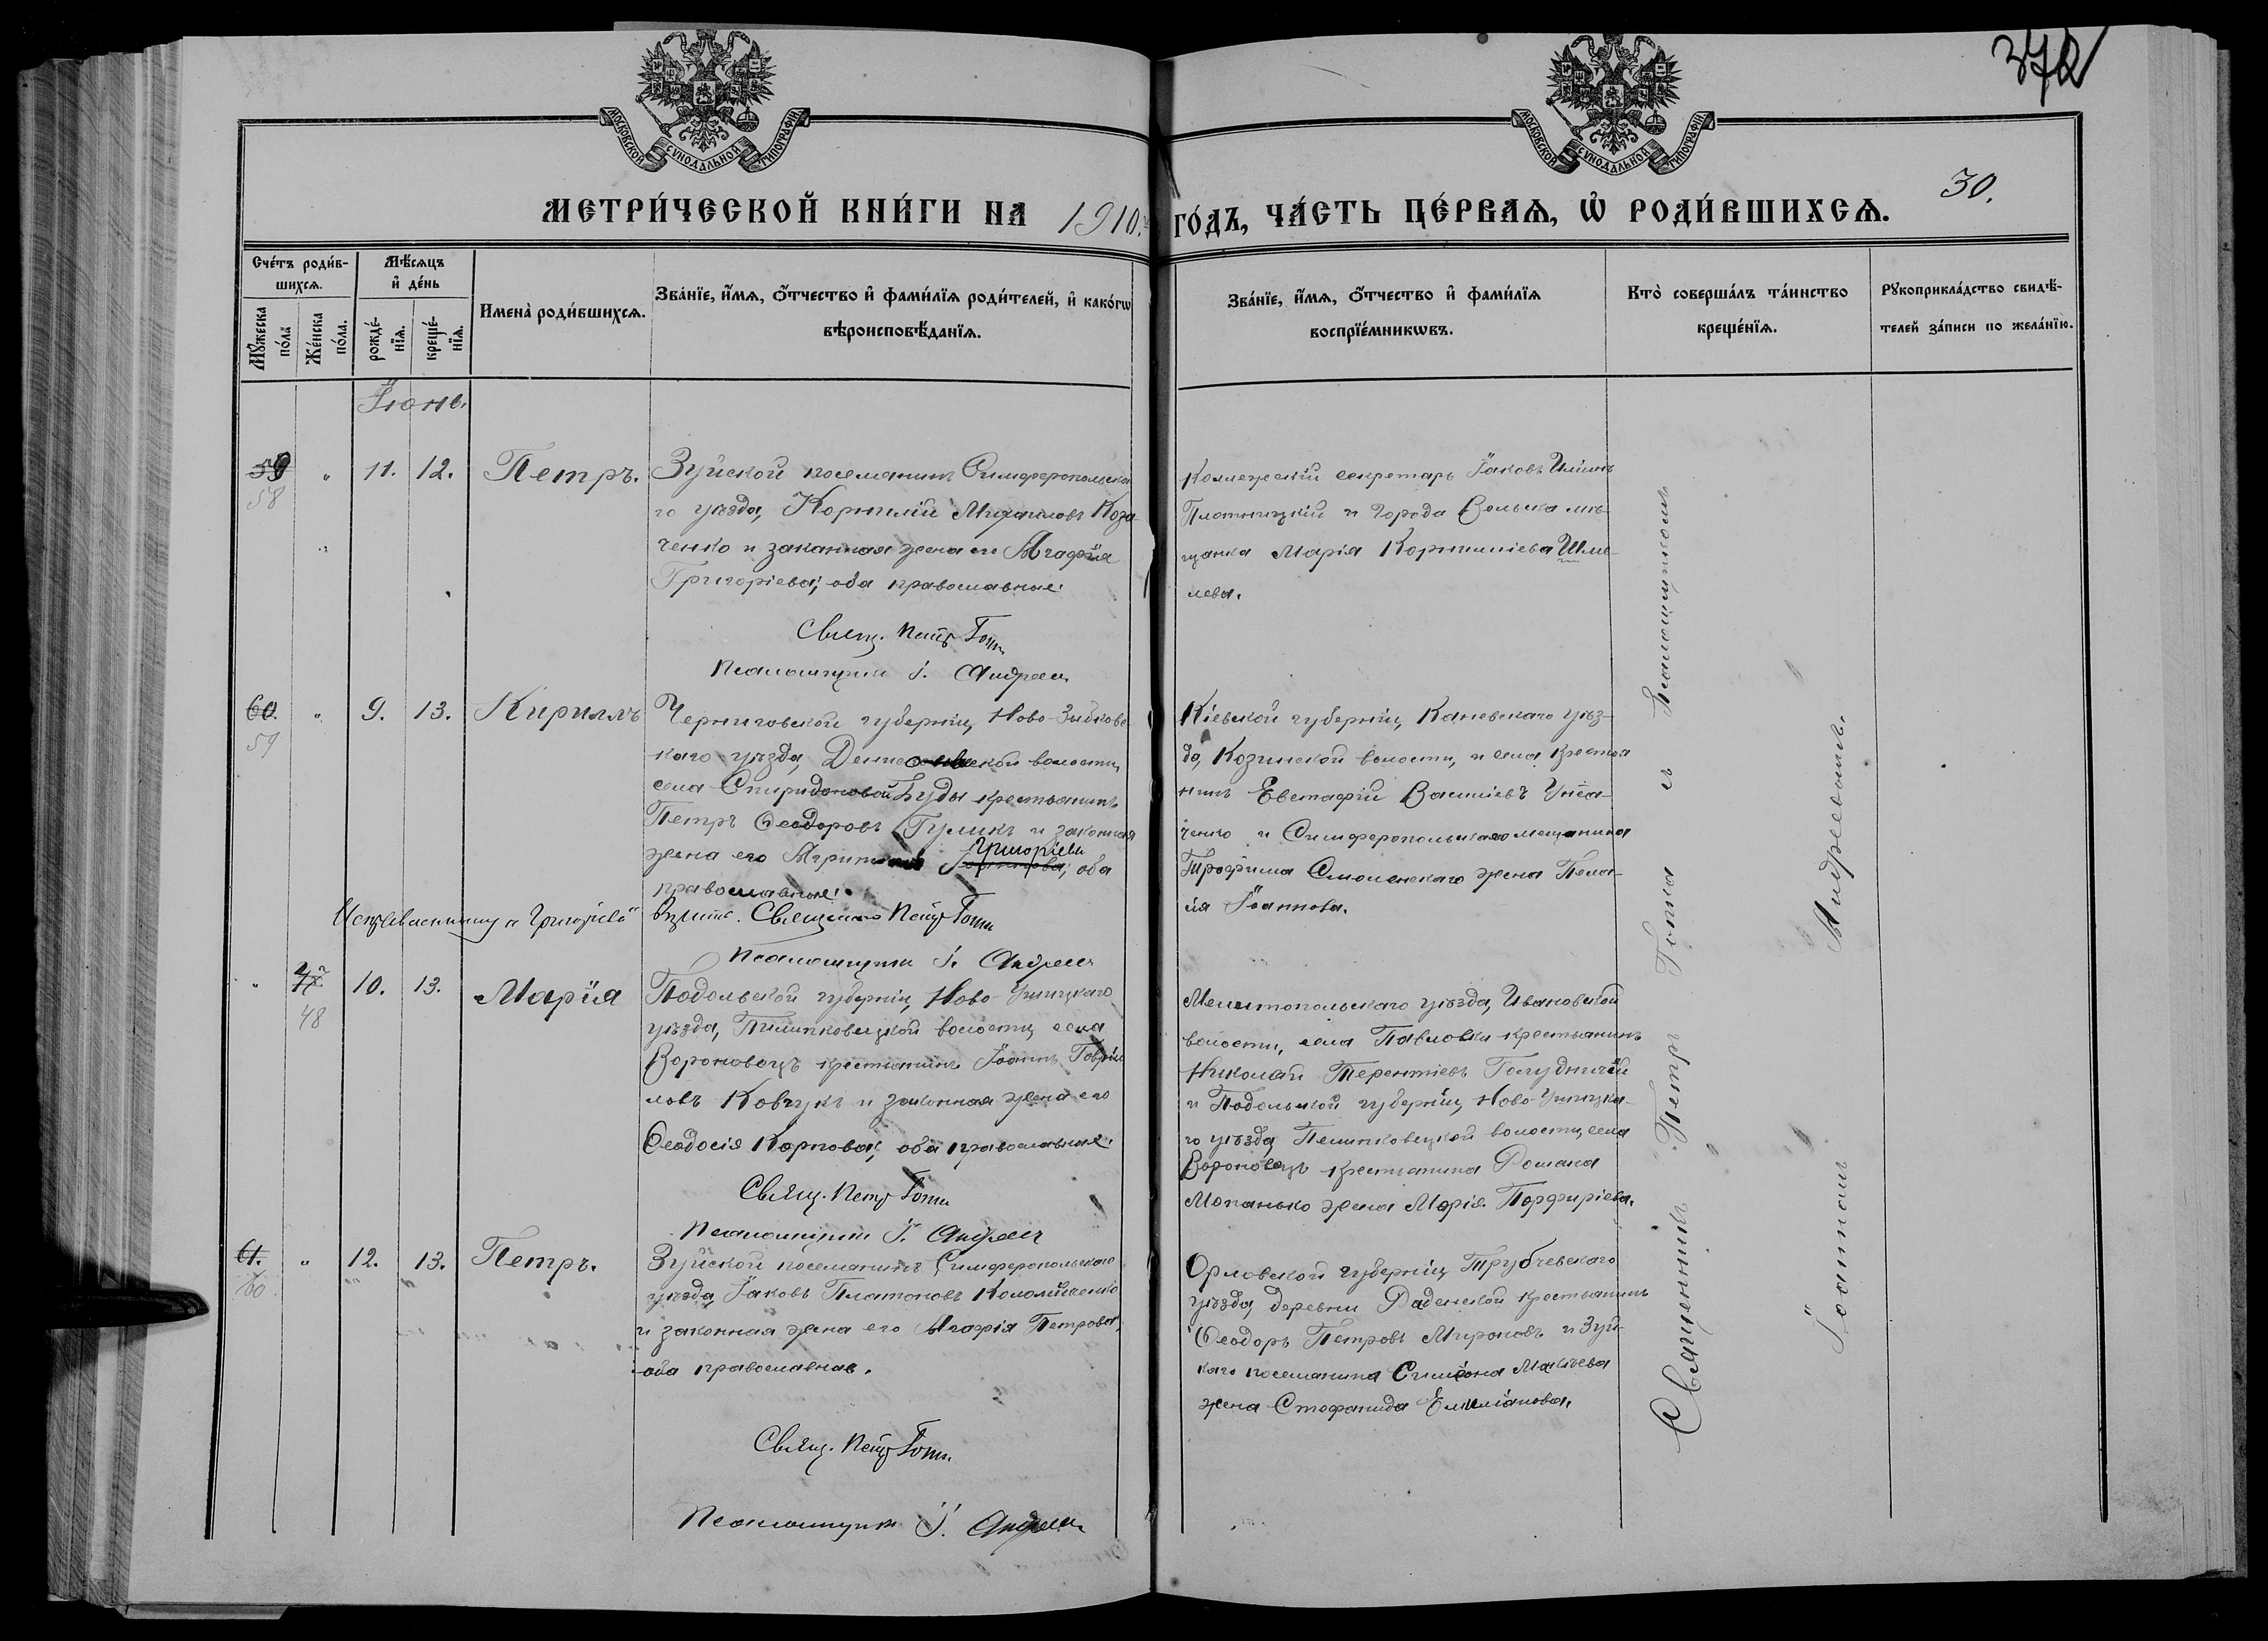 372
МОСКОВСКОЙ СУНОДАЛЬНОЙ ТИПОГРАФІИ
МОСКОВСКОЙ СУНОДАЛЬНОЙ ТИПОГРАФІИ
30.
МЕТРИ́ЧЕСКОЙ КНИ́ГИ НА 1910. ГО́ДЪ, ЧА́СТЬ ПЕ́РВАѦ, Ѡ҆ РОДИ́ВШИХСѦ.
Сче́тъ роди́в-
шихсѧ.
Мꙋ́жеска по́ла
Же́нска по́ла.
Мѣ́сѧцъ
и҆ де́нь
рожде́-
нїѧ.
креще́-
нїѧ.
Имена̀ роди́вшихсѧ.
Зва́нїе, и҆́мѧ, ѻ҆́тчество и҆ фами́лїѧ роди́телей, и҆ како́гѡ
вѣроисповѣ́данїѧ.
Зва́нїе, и҆́мѧ, ѻ҆́тчество и҆ фами́лїѧ
воспрїе́мникѡвъ.
Кто̀ соверша́лъ та́инство
креще́нїѧ.
Рꙋкоприкла́дство свидѣ́-
телей за́писи по жела́нїю.
Іюнь.
59 " 11. 12. Петръ.
58
Зуйской поселянинъ Симферопольска-
го уѣзда, Корнилій Михаиловъ Коза-
ченко и законная жена его Агафія
Григоріева; оба православные.
Свящ. Петръ
Псаломщикъ І. Андреевъ
Коллежскій секретарь Іаковъ Ильинъ
Плотницкій и города Вольска мѣ-
щанка Марія Корниліева Шме-
лева.
60. " 9. 13. Кириллъ
59
Черниговской губерніи, Ново-Зыбков-
скаго уѣзда, волости,
села Спиридоновой Буды крестьянинъ
Петръ Ѳеодоровъ Гуликъ и законная
жена его Григоріева; оба
православные.
Григорьева" вѣрить. Священ. Петръ
Псаломщикъ І. Андреевъ
Кіевской губерніи, Каневскаго уѣз-
да, Козинской волости, и села крестья
нинъ Евстафій Василіевъ
ченко и Симферопольскаго мещанина
Трофима Смоленскаго жена Пела-
гія Іоаннова.
" 47 10. 13. Марія
48
Подольской губерніи, Ново-Ушицкаго
уѣзда, Пилипковецкой волости, села
Вороновецъ крестьянинъ Іоаннъ Гаврій
ловъ Ковчукъ и законная жена его
Ѳеодосія Карпова; оба православные.
Свящ. Петръ
Псаломщикъ І. Андреевъ
Мелитопольскаго уѣзда, Ивановской
волости, села Павловки крестьянинъ
Николай Терентіевъ
и Подольской губерніи, Ново-Ушицка-
го уѣзда, Пелипковецкой волости, села
Вороновецъ крестьянина Романа
Мопанько жена Марія Порфиріева.
61. " 12. 13. Петръ.
60
Зуйской поселянинъ Симферопольскаго
уѣзда, Іаковъ Платоновъ Коломійченко
и законная жена его Агафія Петрова,
оба православные.
Свящ. Петръ
Псаломщикъ І. Андреевъ
Орловской губерніи, Трубчевскаго
уѣзда, деревни Раденской крестьянинъ
Ѳеодоръ Петровъ Мироновъ и Зуй-
скаго поселянина Симеона
жена Стефанида Емиліанова.
Священникъ Петръ съ Псаломщикомъ
Іоанномъ Андреевымъ.